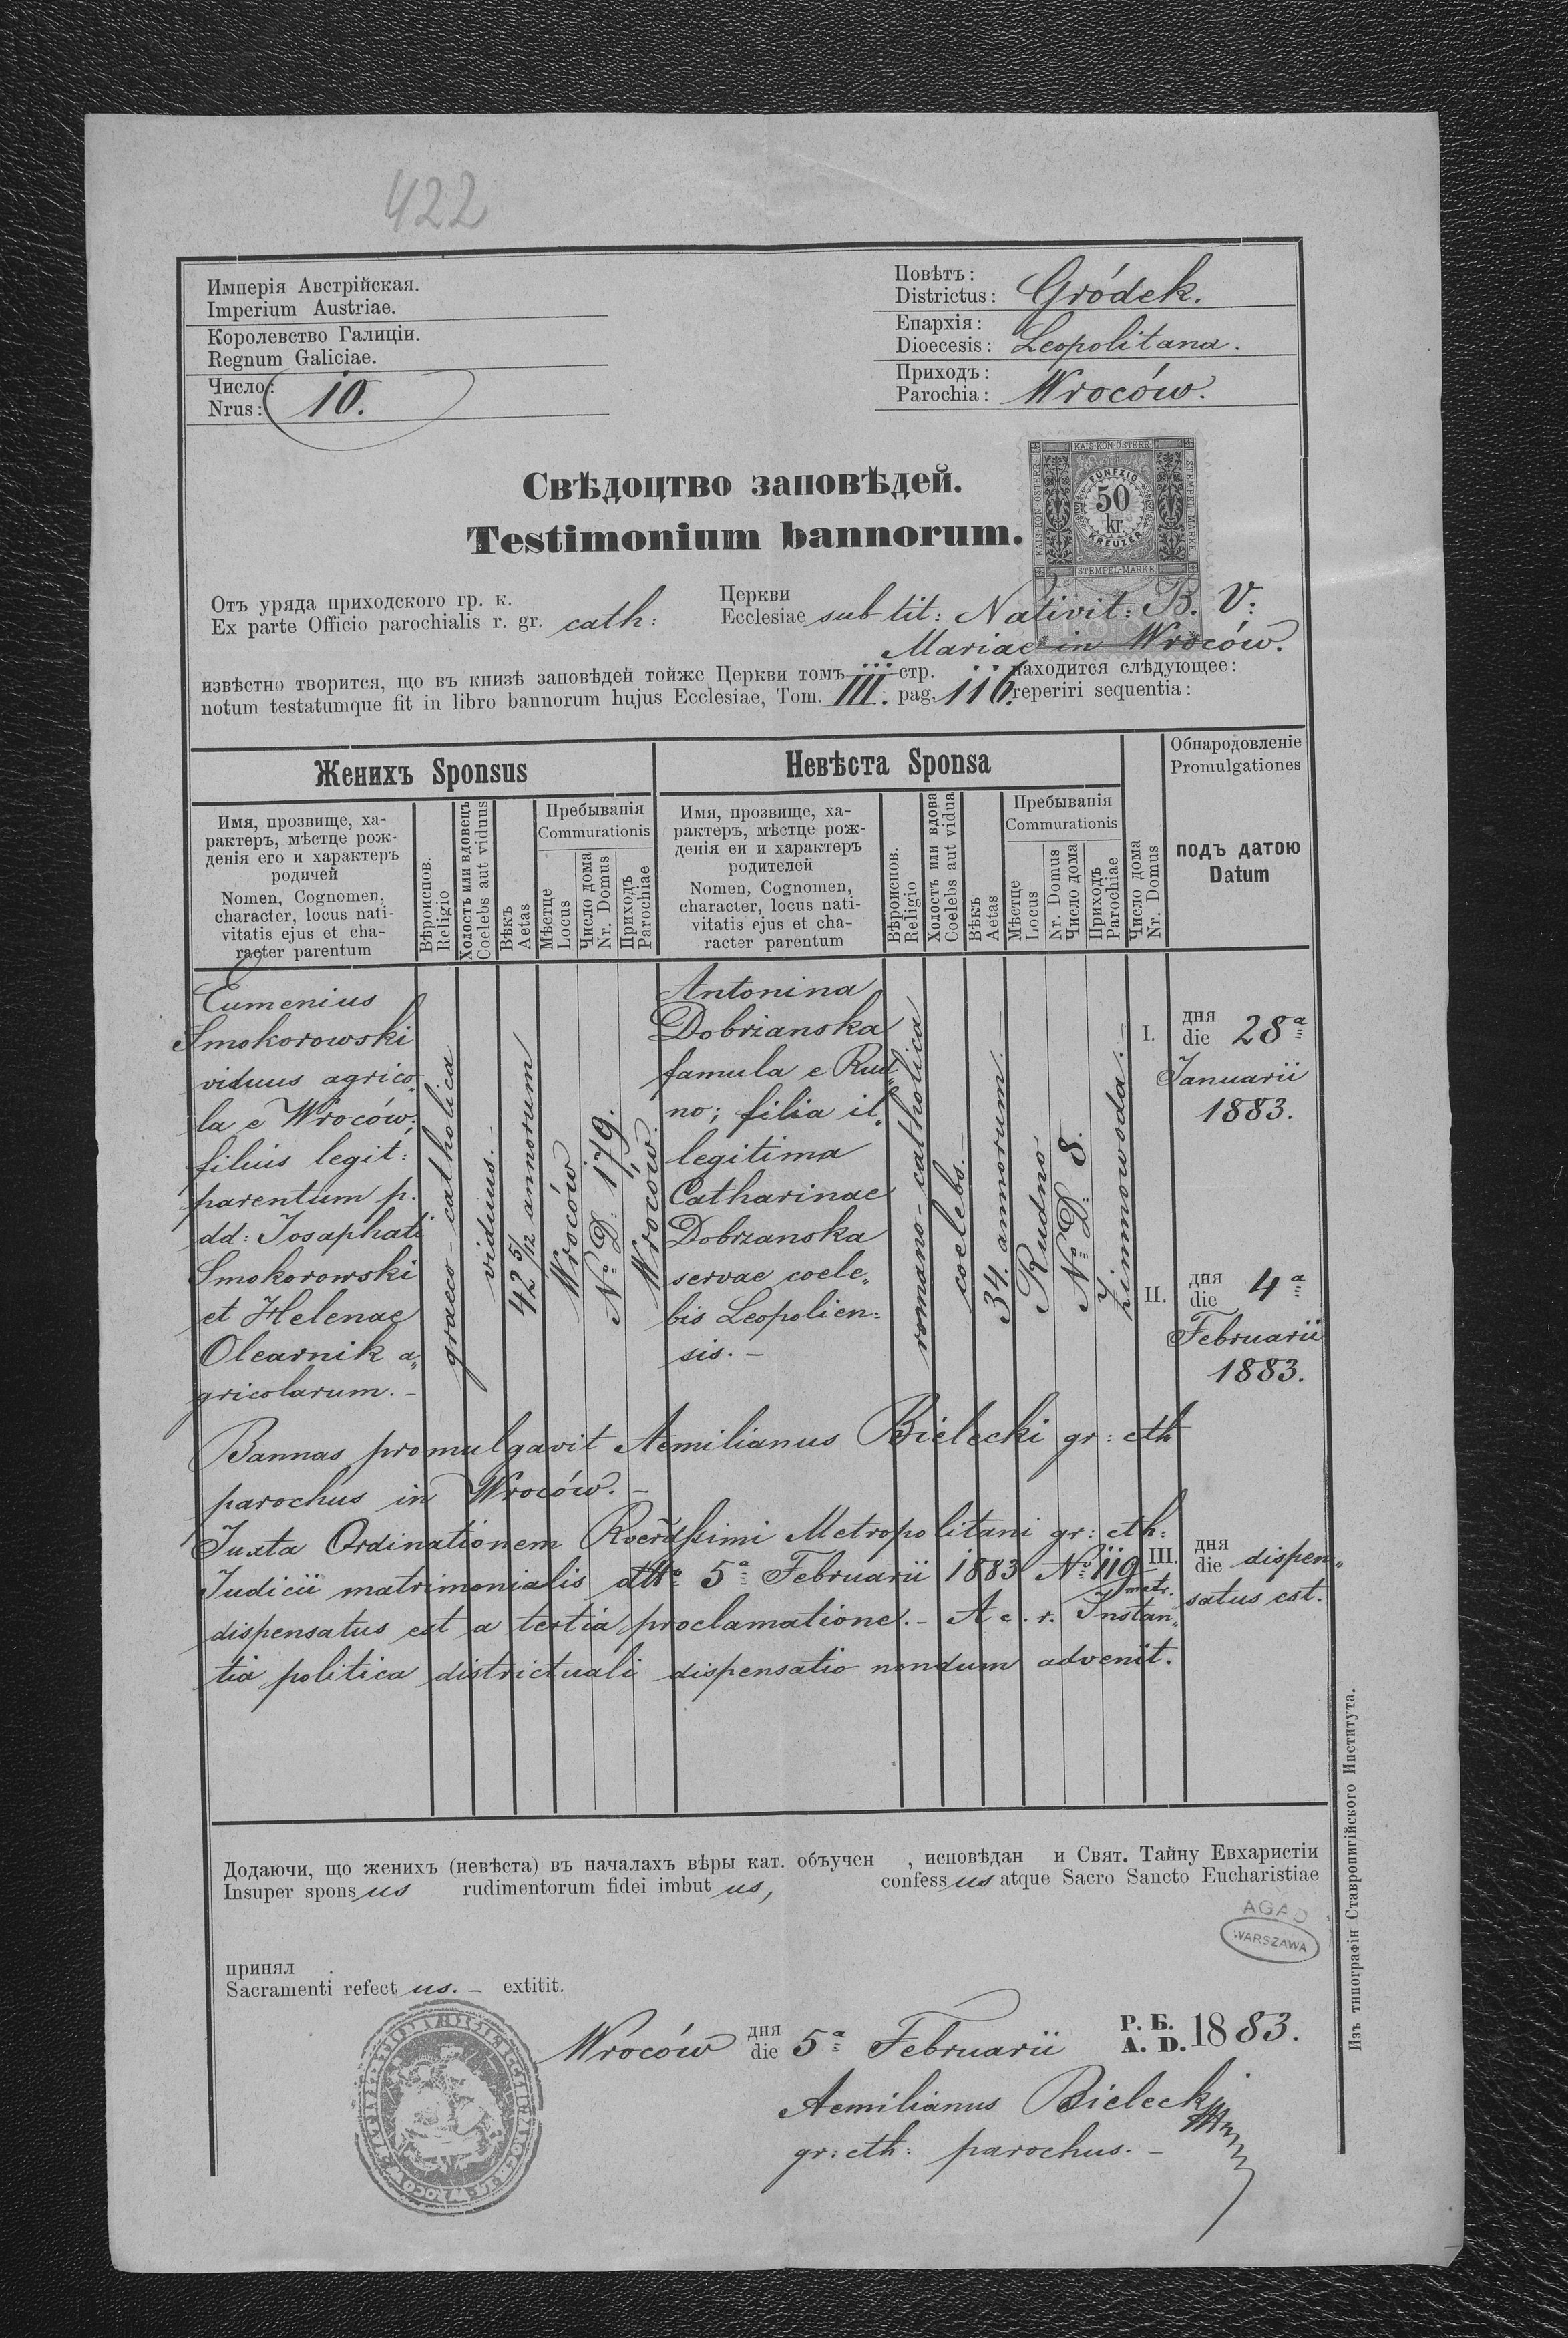 422
Имперія Австрійская.
Imperium Austriae.
Королевство Галиціи.
Regnum Galiciae.
Число:
Nrus: 10.
Повѣтъ:
Districtus: Gródek.
Епархія:
Dioecesis: Leopolitana.
Приходъ:
Parochia: Wroców.
KAIS·KÖN·ÖSTERR·
KAIS·KÖN·ÖSTERR·
STEMPEL-MARKE
FÜNFZIG
50
kr.
KREUZER
STEMPEL-MARKE
Свѣдоцтво заповѣдей.
Testimonium bannorum.
Отъ уряда приходского гр. к. Церкви
Ex parte Officio parochialis r. gr. cath: Ecclesiae sub tit: Nativit: B. V:
Mariae in Wroców.
извѣстно творится, що въ книзѣ заповѣдей тойже Церкви томъ стр. находится слѣдующее:
notum testatumque fit in libro bannorum hujus Ecclesiae, Tom. III. pag. 116. reperiri sequentia:
Женихъ Sponsus
Имя, прозвище, ха-
рактеръ, мѣстце рож-
денія его и характеръ
родичей
Nomen, Cognomen,
character, locus nati-
vitatis ejus et cha-
racter parentum
Вѣроиспов.
Religio
Холостъ или вдовецъ
Coelebs aut viduus
Вѣкъ
Aetas
Пребыванія
Commurationis
Мѣстце
Locus
Число дома
Nr. Domus
Приходъ
Parochiae
Невѣста Sponsa
Имя, прозвище, ха-
рактеръ, мѣстце рож-
денія еи и характеръ
родителей
Nomen, Cognomen,
character, locus nati-
vitatis ejus et cha-
racter parentum
Вѣроиспов.
Religio
Холостъ или вдова
Coelebs aut vidua
Вѣкъ
Aetas
Пребыванія
Commurationis
Мѣстце
Locus
Nr. Domus
Число дома
Приходъ
Parochiae
Число дома
Nr. Domus
Обнародовленіе
Promulgationes
подъ датою
Datum
Eumenius
Smokorowski
viduus agrico„
la e Wroców;
filius legit:
parentum p.
dd: Josaphati
Smokorowski
et Helenae
Olearnik a„
gricolarum. –
graeco-catholica
viduus. –
42 5/12 annorum
Wroców
No D: 179.
Wroców.
Antonina
Dobrzanska
famula e Rud„
no; filia il„
legitima
Catharinae
Dobrzanska
servae coele„
bis Leopolien:
sis. –
romano-catholica
coelebs. –
34. annorum. –
Rudno
No D: 8.
Zimnowoda. –
I. дня
die 28a
Januarii
1883.
II. дня
die 4a
Februarii
1883.
Bannas promulgavit Aemilianus Bielecki gr: cth
parochus in Wroców. –
Juxta Ordinationem Rverdssimi Metropolitani gr: cth:
Judicii matrimonialis dtto 5a Februarii 1883 No 119 matr.
dispensatus est a tertia proclamatione. – A c. r. Instan„
tia politica districtuali dispensatio nondum advenit.
III. дня
die dispen„
satus est.
Додаючи, що женихъ (невѣста) въ началахъ вѣры кат. объучен , исповѣдан и Свят. Тайну Евхаристіи
Insuper spons us rudimentorum fidei imbut us, confess us atque Sacro Sancto Eucharistiae
AGAD
WARSZAWA
принял
Sacramenti refect us. – extitit.
Wroców дня
die 5a Februarii Р. Б.
A. D. 1883.
Aemilianus Bielecki
gr: cth: parochus. –
Изъ типографіи Ставропигійского Института.